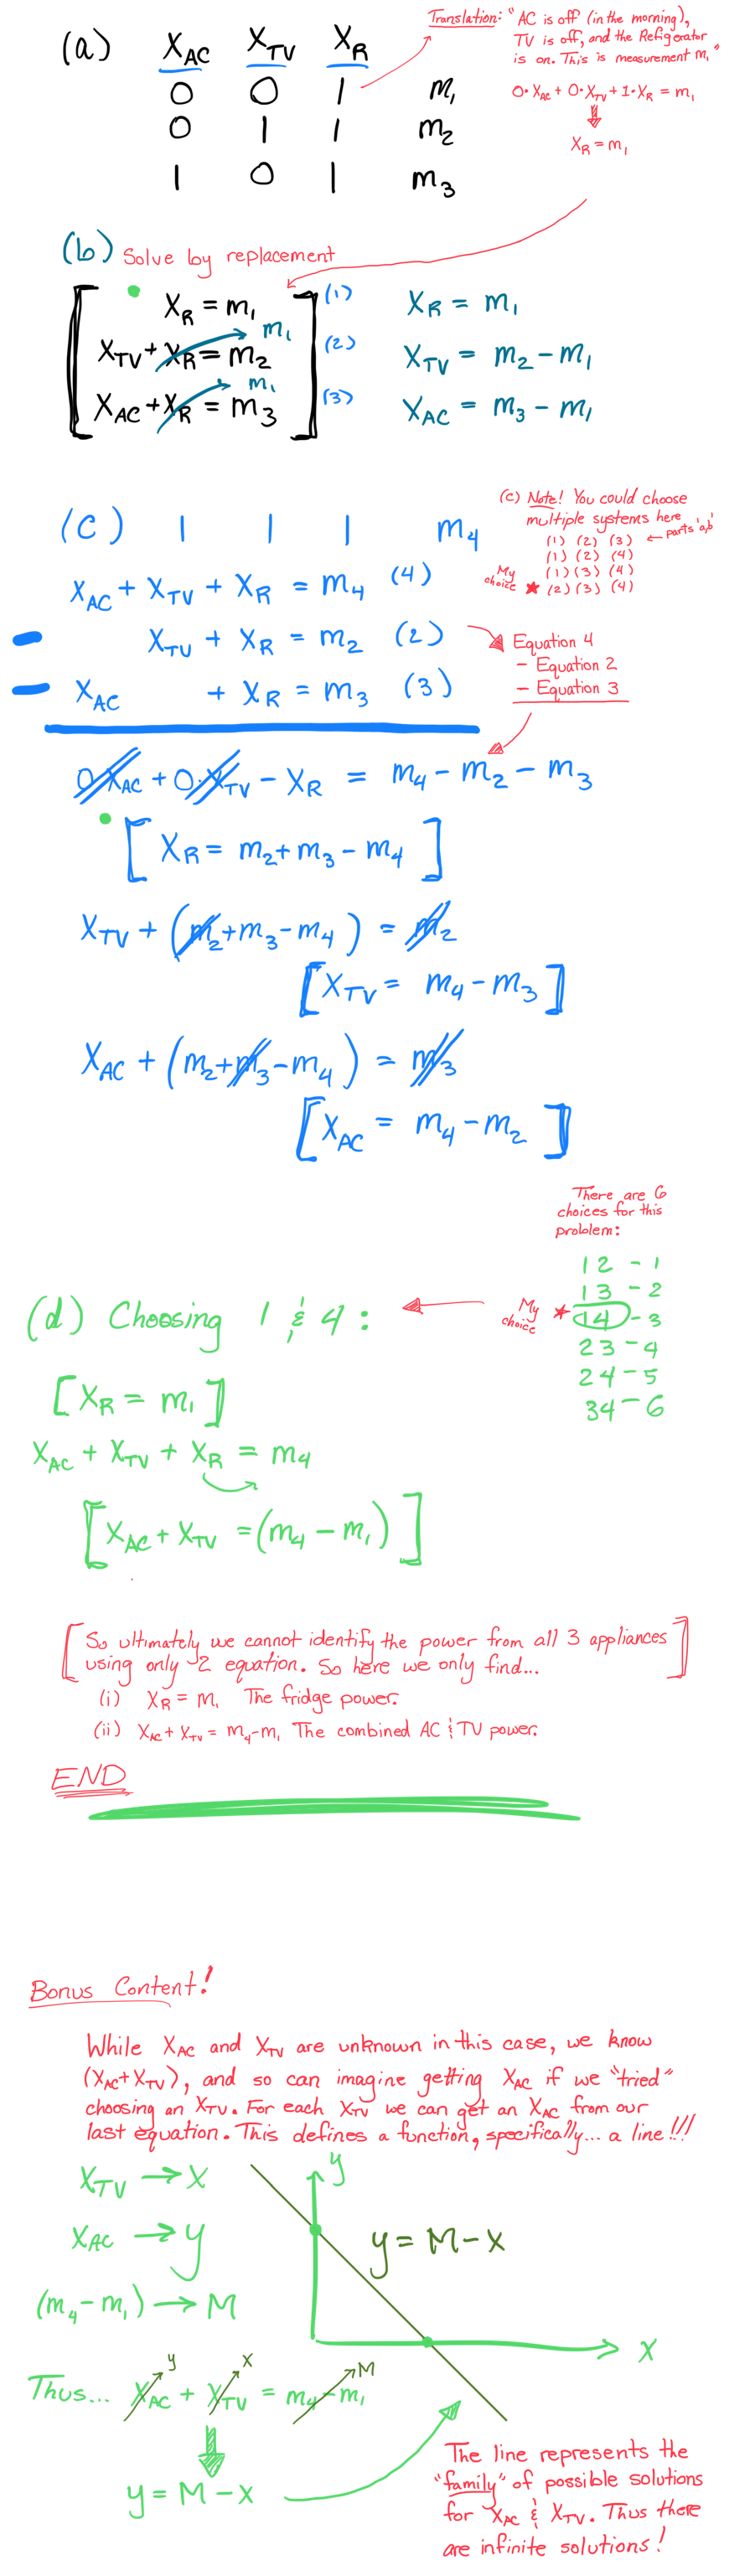 (a) X_AC X_TV X_R
0 0 1 m₁
0 1 1 m₂
1 0 1 m₃
Translation: "AC is off (in the morning),
TV is off, and the Refigerator
is on. This is measurement m₁"
0·X_AC + 0·X_TV + 1·X_R = m₁
X_R = m₁
(b) Solve by replacement
X_R = m₁ (1)
X_TV + X_R = m₂ (2)
m₁
X_AC + X_R = m₃ (3)
m₁
X_R = m₁
X_TV = m₂ - m₁
X_AC = m₃ - m₁
(c) 1 1 1 m₄
X_AC + X_TV + X_R = m₄ (4)
- X_TV + X_R = m₂ (2)
- X_AC + X_R = m₃ (3)
(c) Note! You could choose
multiple systems here
(1) (2) (3) ← parts 'a,b'
(1) (2) (4)
(1) (3) (4)
My choice ★ (2) (3) (4)
Equation 4
- Equation 2
- Equation 3
0·X_AC + 0·X_TV - X_R = m₄ - m₂ - m₃
[X_R = m₂ + m₃ - m₄]
X_TV + (m₂ + m₃ - m₄) = m₂
[X_TV = m₄ - m₃]
X_AC + (m₂ + m₃ - m₄) = m₃
[X_AC = m₄ - m₂]
There are 6
choices for this
problem:
12 - 1
13 - 2
My choice ★ 14 - 3
23 - 4
24 - 5
34 - 6
(d) Choosing 1 & 4:
[X_R = m₁]
X_AC + X_TV + X_R = m₄
[X_AC + X_TV = (m₄ - m₁)]
[So ultimately we cannot identify the power from all 3 appliances
using only 2 equation. So here we only find...]
(i) X_R = m₁ The fridge power.
(ii) X_AC + X_TV = m₄ - m₁ The combined AC & TV power.
END
Bonus Content!
While X_AC and X_TV are unknown in this case, we know
(X_AC + X_TV), and so can imagine getting X_AC if we "tried"
choosing an X_TV. For each X_TV we can get an X_AC from our
last equation. This defines a function, specifically... a line!!!
X_TV → X
X_AC → y
(m₄ - m₁) → M
y
y = M - x
x
Thus... X_AC + X_TV = m₄ - m₁
y x M
y = M - x
The line represents the
"family" of possible solutions
for X_AC & X_TV. Thus there
are infinite solutions!